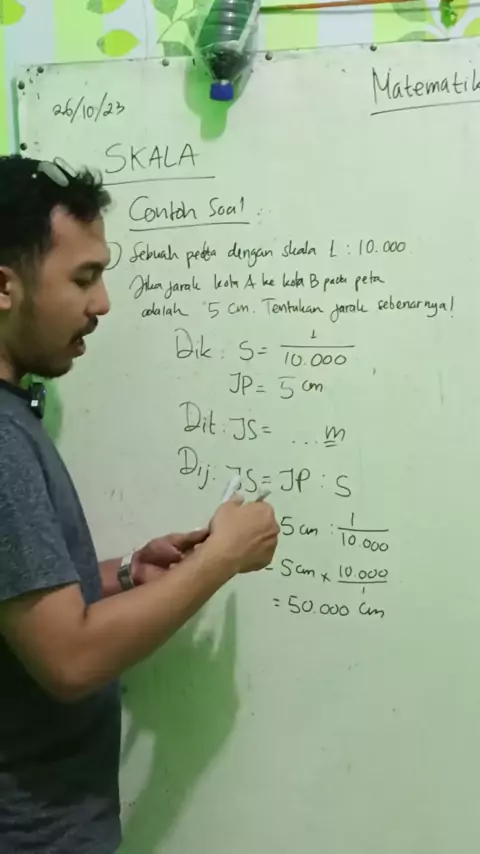 Matematik
26/10/23
SKALA
Contoh Soal :
) Sebuah peta dengan skala 1 : 10.000.
Jika jarak kota A ke kota B pada peta
adalah 5 cm. Tentukan jarak sebenarnya!
Dik : S = 1/10.000
JP = 5 cm
Dit : JS = ... m
Dij : JS = JP : S
5 cm : 1/10.000
= 5 cm × 10.000/1
= 50.000 cm